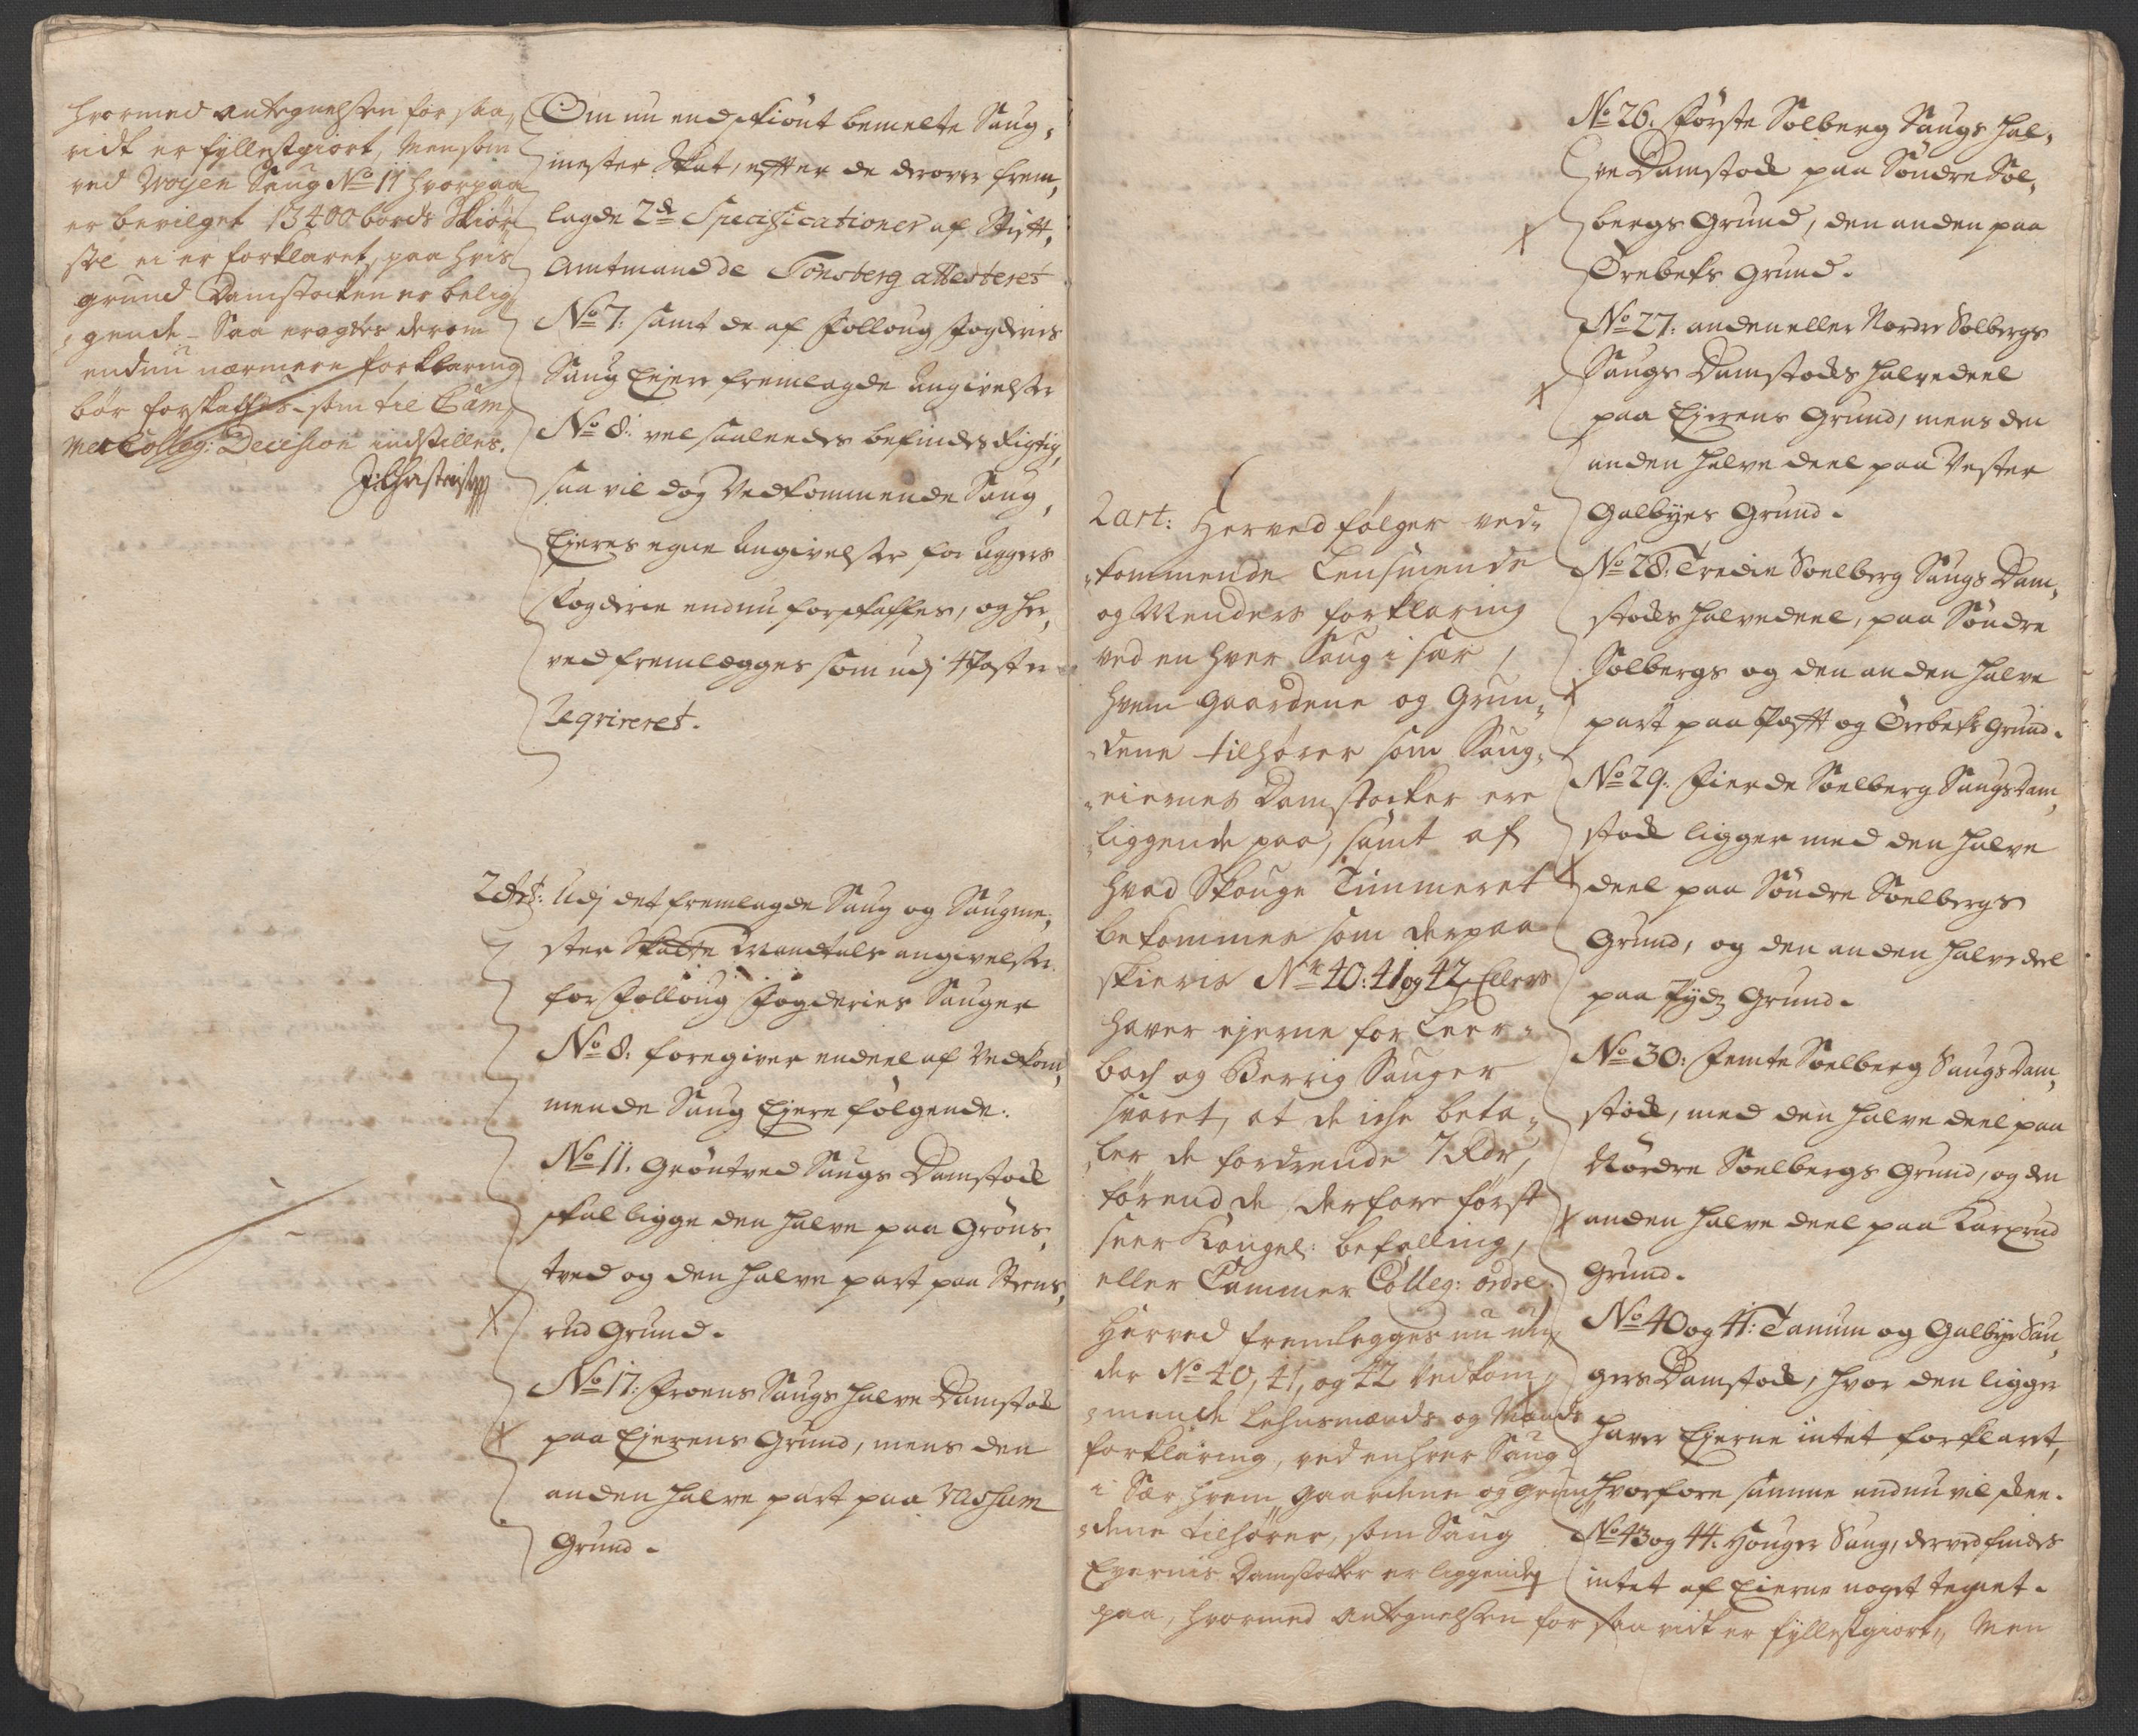 hvormed antegnelsen for saa„
vidt er fyllestgiort, Men som
ved Woyen Saug No 11 hvorpaa
er bevilget 13400 bords Skiør„
sel ei er forklaret, paa hvis
grund Damstocken er belig„
„gende – Saa eragtes derom
endnu nærmere forklaring
bør forskaffes – som til Cam„
mer Colleg: Decision indstilles.
Om nu endskiønt bemelte Saug„
mester Skat, efter de derover frem„
lagde 2de Specificationer af Stift„
Amtmand de Tonsberg attesteret
No 7: samt de af Folloug Fogderies
Saug Ejere fremlagde angivelser
No 8: vel saaledes befindes rigtig,
saa vil dog Vedkommende Saug„
Ejeres egne angivelser for Aggers
Fogderie endnu forskaffes, og her„
ved fremlægges som udj 4 Poster
Reqvireret.
2 Art: Udj det fremlagde Saug og Saugme„
ster Skatte Mandtals angivelser
for Folloug Fogderies Sauger
No 8: foregiver endeel af Vedkom„
mende Saug Ejere følgende:
No 11. Gröntved Saugs Damstock
skal ligge den halve paa Gröns„
tved og den halve part paa Steens„
rud Grund.
No 17: Froens Saugs halve Damstock
paa Ejerens Grund, mens den
anden halve part paa Vashum
Grund.
2 art: Herved følger ved„
„kommende Lensmende
og Menders forklaring
ved en hver Saug i sær,
hvem gaardene og Grun„
„dene tilhører som Saug„
„eiernes Damstocker ere
liggende paa, samt af
hvad Skouge Timmeret
bekommes som derpaa
skieris No 40: 41 og 42, Ellers
haver ejerne for Leer„
boch og Berrig Sauger
svaret, at de iche beta„
„ler de fordrende 7 Rdr,
førend de derfore først
seer Kongel: befalling,
eller Cammer Colleg: ordre.
Herved fremlegges nu un„
der No 40, 41, og 42 Vedkom„
„mende Lehnsmænds og Mænds
forklaring, ved en hver Saug
i Sær hvem gaardene og grun„
„dene tilhører, som Saug
Eyernis Damstocker er liggendes
paa, hvormed antegnelsen for saa vidt er fyllestgiort, Men
No 26. Første Solberg Saugs hal„
ve Damstock paa Søndre Sol„
bergs Grund, den anden paa
Örebeks Grund.
No 27: anden eller Nordre Solbergs
Saugs Damstocks halvedeel
paa Ejerens Grund, mens den
anden halve deel paa Vester
Galbyes Grund.
No 28: Tredie Soelberg Saugs Dam„
stocks halvedeel, paa Söndre
Solbergs og den anden halve
part paa Toft og Örebeks Grund.
No 29: Fierde Soelberg Saugs Dam„
stock ligger med den halve
deel paa Söndre Soelbergs
Grund, og den anden halve deel
paa Grund.
No 30: Femte Soelberg Saugs Dam„
stock, med den halve deel paa
Nördre Soelbergs Grund, og den
anden halve deel paa Karprud
Grund.
No 40 og 41: Tanum og Galbye Sau„
gers Damstock, hvor den ligger
haver Ejerne intet forklaret,
hvorfore samme endnu vil skee.
No 43 og 44. Houger Saug, derved findes
intet af Eierne noget tegnet.